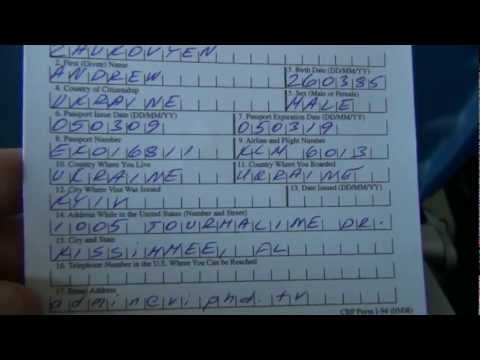 2. First (Given) Name
ANDREW
3. Birth Date (DD/MM/YY)
260385
4. Country of Citizenship
UKRAINE
5. Sex (Male or Female)
MALE
6. Passport Issue Date (DD/MM/YY)
050309
7. Passport Expiration Date (DD/MM/YY)
050319
8. Passport Number
EK016811
9. Airline and Flight Number
KLM 6013
10. Country Where You Live
UKRAINE
11. Country Where You Boarded
UKRAINE
12. City Where Visa Was Issued
KYIV
13. Date Issued (DD/MM/YY)
14. Address While in the United States (Number and Street)
1005 DR.
15. City and State
KISSIMMEE, FL
16. Telephone Number in the U.S. Where You Can be Reached
17. Email Address
CBP Form I-94 (05/08)